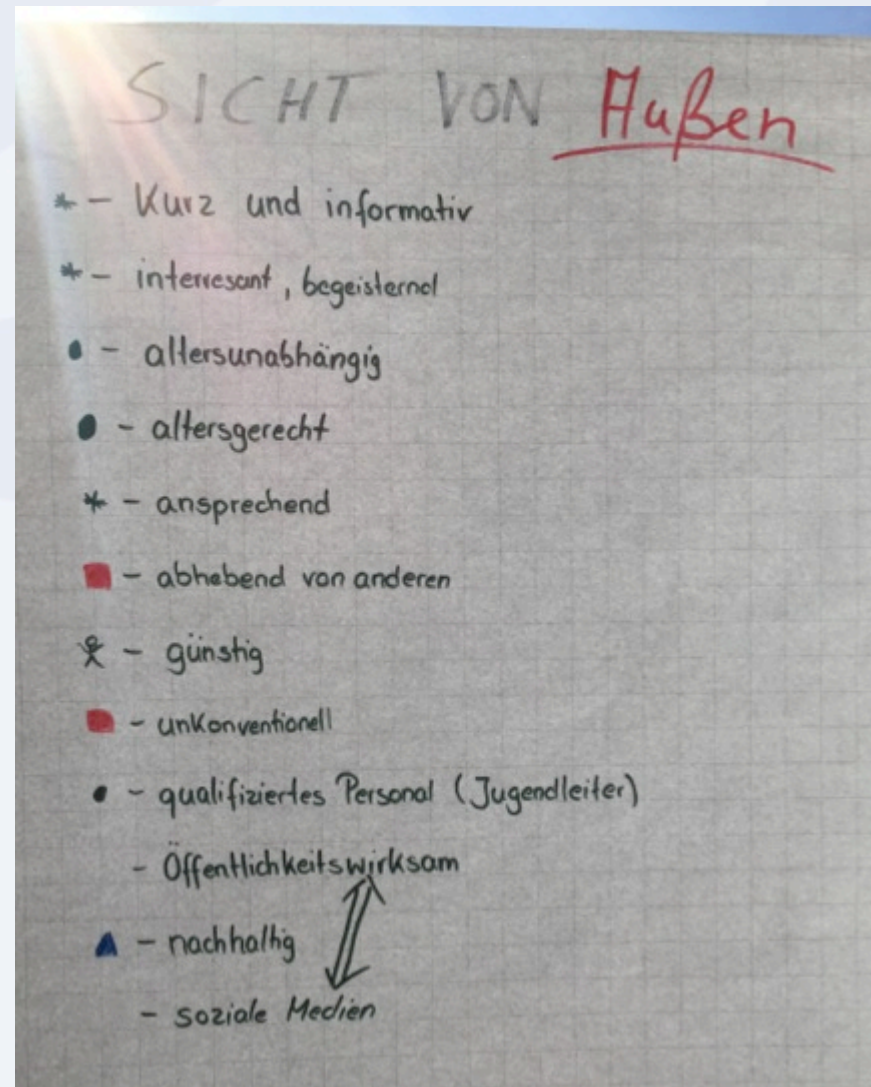 SICHT VON Außen
* - Kurz und informativ
* - interresant, begeisternd
• - altersunabhängig
• - altersgerecht
* - ansprechend
■ - abhebend von anderen
- günstig
■ - unkonventionell
• - qualifiziertes Personal (Jugendleiter)
- Öffentlichkeitswirksam
▲ - nachhaltig
- soziale Medien